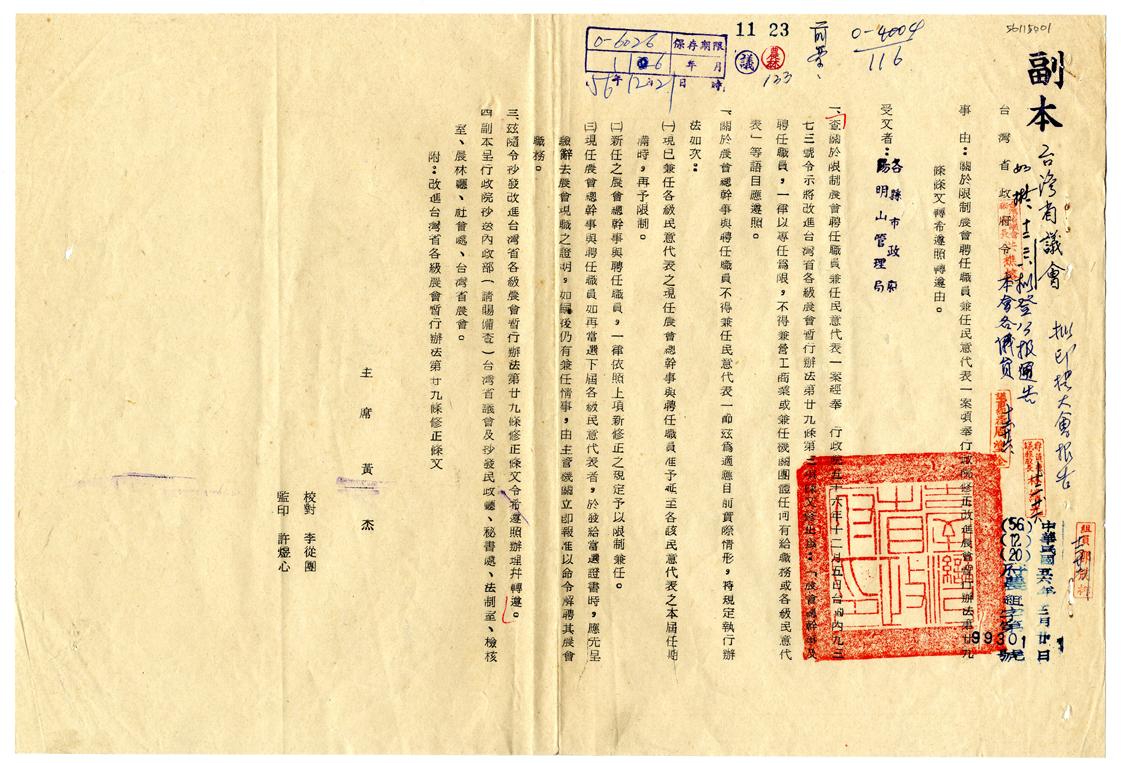 56115001
副本
台灣省議會
台灣省政府令
中華民國五十六年十二月廿日
(56)(12)(20)
99301號
事由：關於限制農會聘任職員兼任民意代表一案頃奉行政院修正改進農會暫行辦法第廿九
條條文轉希遵照轉遵由。
受文者：各縣市政府
陽明山管理局
一、查關於限制農會聘任職員兼任民意代表一案經奉 行政院五十六年十二月五日台內九三
七三號令示將改進台灣省各級農會暫行辦法第廿九條第二項條文修正為：「農會總幹事及
聘任職員，一律以專任為限，不得兼營工商業或兼任機關團體任何有給職務或各級民意代
表」等語目應遵照。
二、關於農會總幹事與聘任職員不得兼任民意代表一節茲為適應目前實際情形，特規定執行辦
法如次：
㈠現已兼任各級民意代表之現任農會總幹事與聘任職員准予延至各該民意代表之本屆任期
滿時，再予限制。
㈡新任之農會總幹事與聘任職員，一律依照上項新修正之規定予以限制兼任。
㈢現任農會總幹事與聘任職員如再當選下屆各級民意代表者，於發給當選證書時，應先呈
繳辭去農會現職之證明，如嗣後仍有兼任情事，由主管機關立即報准以命令解聘其農會
職務。
三、茲隨令抄發改進台灣省各級農會暫行辦法第廿九條修正條文令希遵照辦理幷轉遵。
四、副本呈行政院抄送內政部（請賜備查）台灣省議會及抄發民政廳、秘書處、法制室、檢核
室、農林廳、社會處、台灣省農會。
附：改進台灣省各級農會暫行辦法第廿九條修正條文
主席 黃杰
校對 李從團
監印 許煜心
11 23
議
農林
123
0-4004
116
0-6026
保存期限
年 月
56年12月21日 時